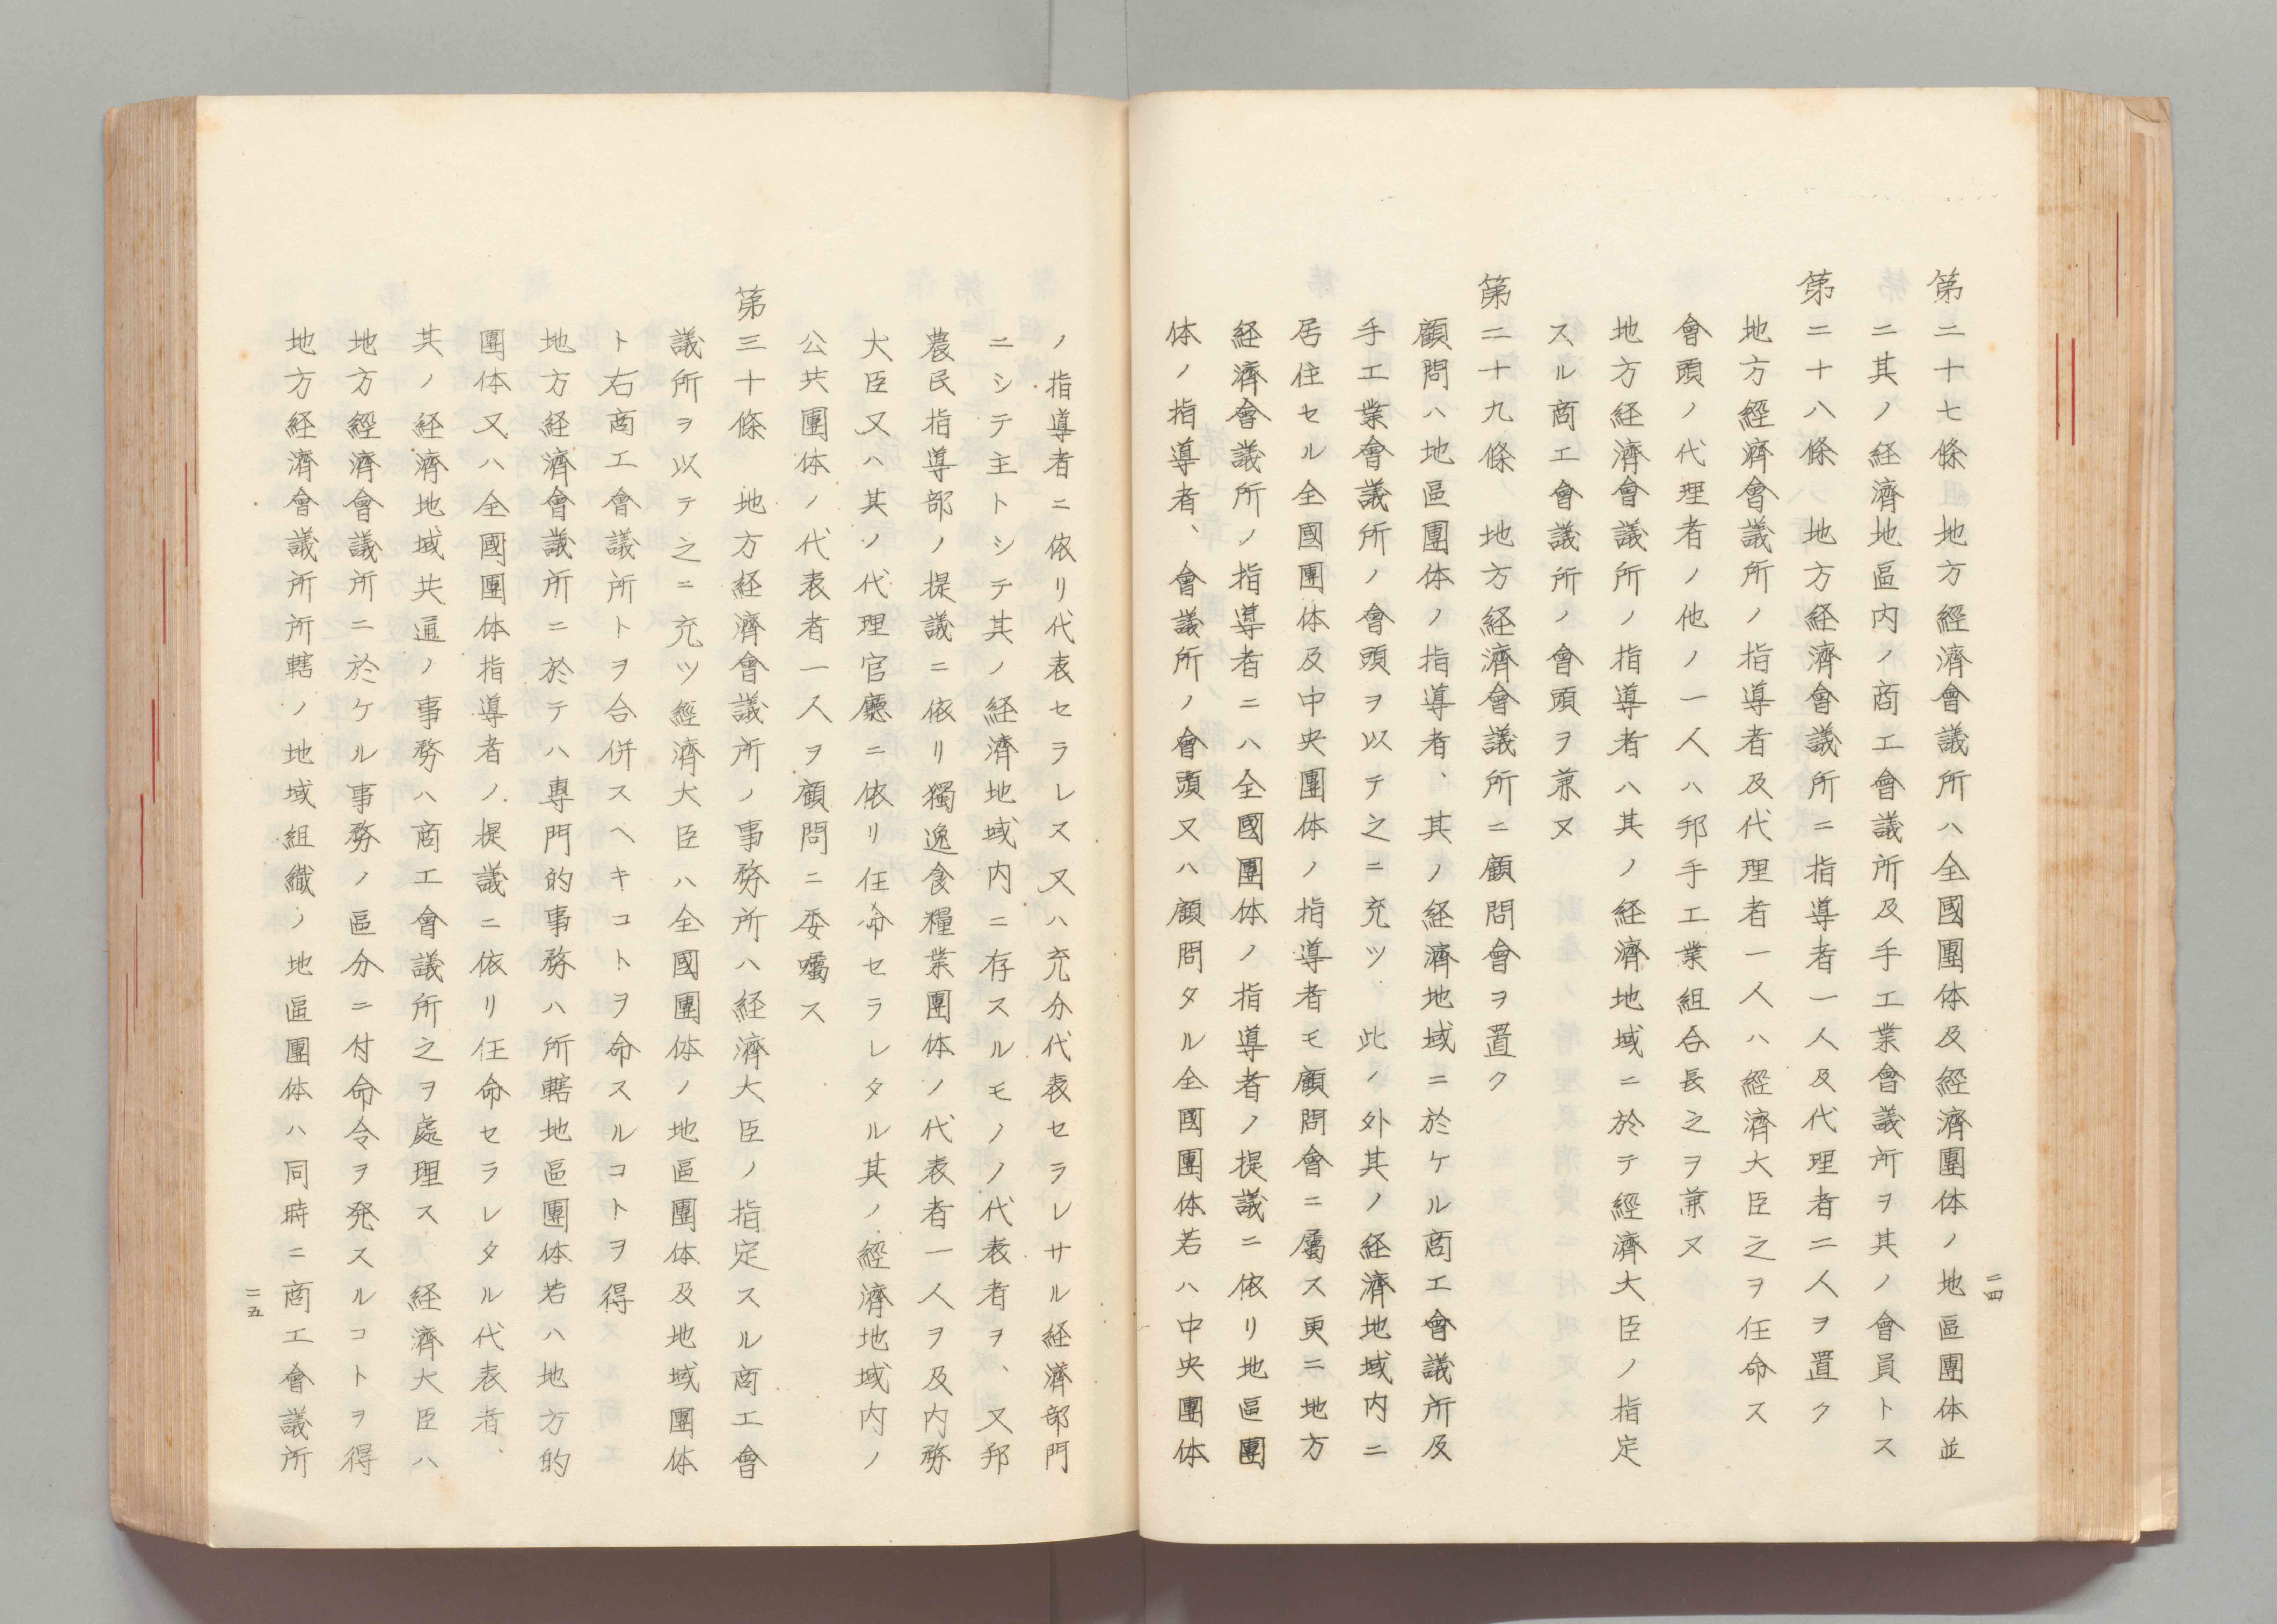 二四
第二十七條　地方經濟會議所ハ全國團体及經濟團体ノ地區團体並
ニ其ノ経濟地區内ノ商工會議所及手工業會議所ヲ其ノ會員トス
第二十八條　地方経濟會議所ニ指導者一人及代理者二人ヲ置ク
地方經濟會議所ノ指導者及代理者一人ハ經濟大臣之ヲ任命ス
會頭ノ代理者ノ他ノ一人ハ邦手工業組合長之ヲ兼ヌ
地方経濟會議所ノ指導者ハ其ノ経濟地域ニ於テ經濟大臣ノ指定
スル商工會議所ノ會頭ヲ兼ヌ
第二十九條　地方経濟會議所ニ顧問會ヲ置ク
顧問ハ地區團体ノ指導者、其ノ経濟地域ニ於ケル商工會議所及
手工業會議所ノ會頭ヲ以テ之ニ充ツ　此ノ外其ノ経濟地域内ニ
居住セル全國團体及中央團体ノ指導者モ顧問會ニ屬ス更ニ地方
経濟會議所ノ指導者ニハ全國團体ノ指導者ノ提議ニ依リ地區團
体ノ指導者、會議所ノ會頭又ハ顧問タル全國團体若ハ中央團体
ノ指導者ニ依リ代表セラレス又ハ充分代表セラレサル経濟部門
ニシテ主トシテ其ノ経濟地域内ニ存スルモノノ代表者ヲ、又邦
農民指導部ノ提議ニ依リ獨逸食糧業團体ノ代表者一人ヲ及内務
大臣又ハ其ノ代理官廳ニ依リ任命セラレタル其ノ經濟地域内ノ
公共團体ノ代表者一人ヲ顧問ニ委囑ス
第三十條　地方経濟會議所ノ事務所ハ経濟大臣ノ指定スル商工會
議所ヲ以テ之ニ充ツ經濟大臣ハ全國團体ノ地區團体及地域團体
ト右商工會議所トヲ合併スヘキコトヲ命スルコトヲ得
地方経濟會議所ニ於テハ專門的事務ハ所轄地區團体若ハ地方的
團体又ハ全國團体指導者ノ提議ニ依リ任命セラレタル代表者、
其ノ経濟地域共通ノ事務ハ商工會議所之ヲ處理ス　経濟大臣ハ
地方經濟會議所ニ於ケル事務ノ區分ニ付命令ヲ発スルコトヲ得
地方経濟會議所所轄ノ地域組織ノ地區團体ハ同時ニ商工會議所
二五